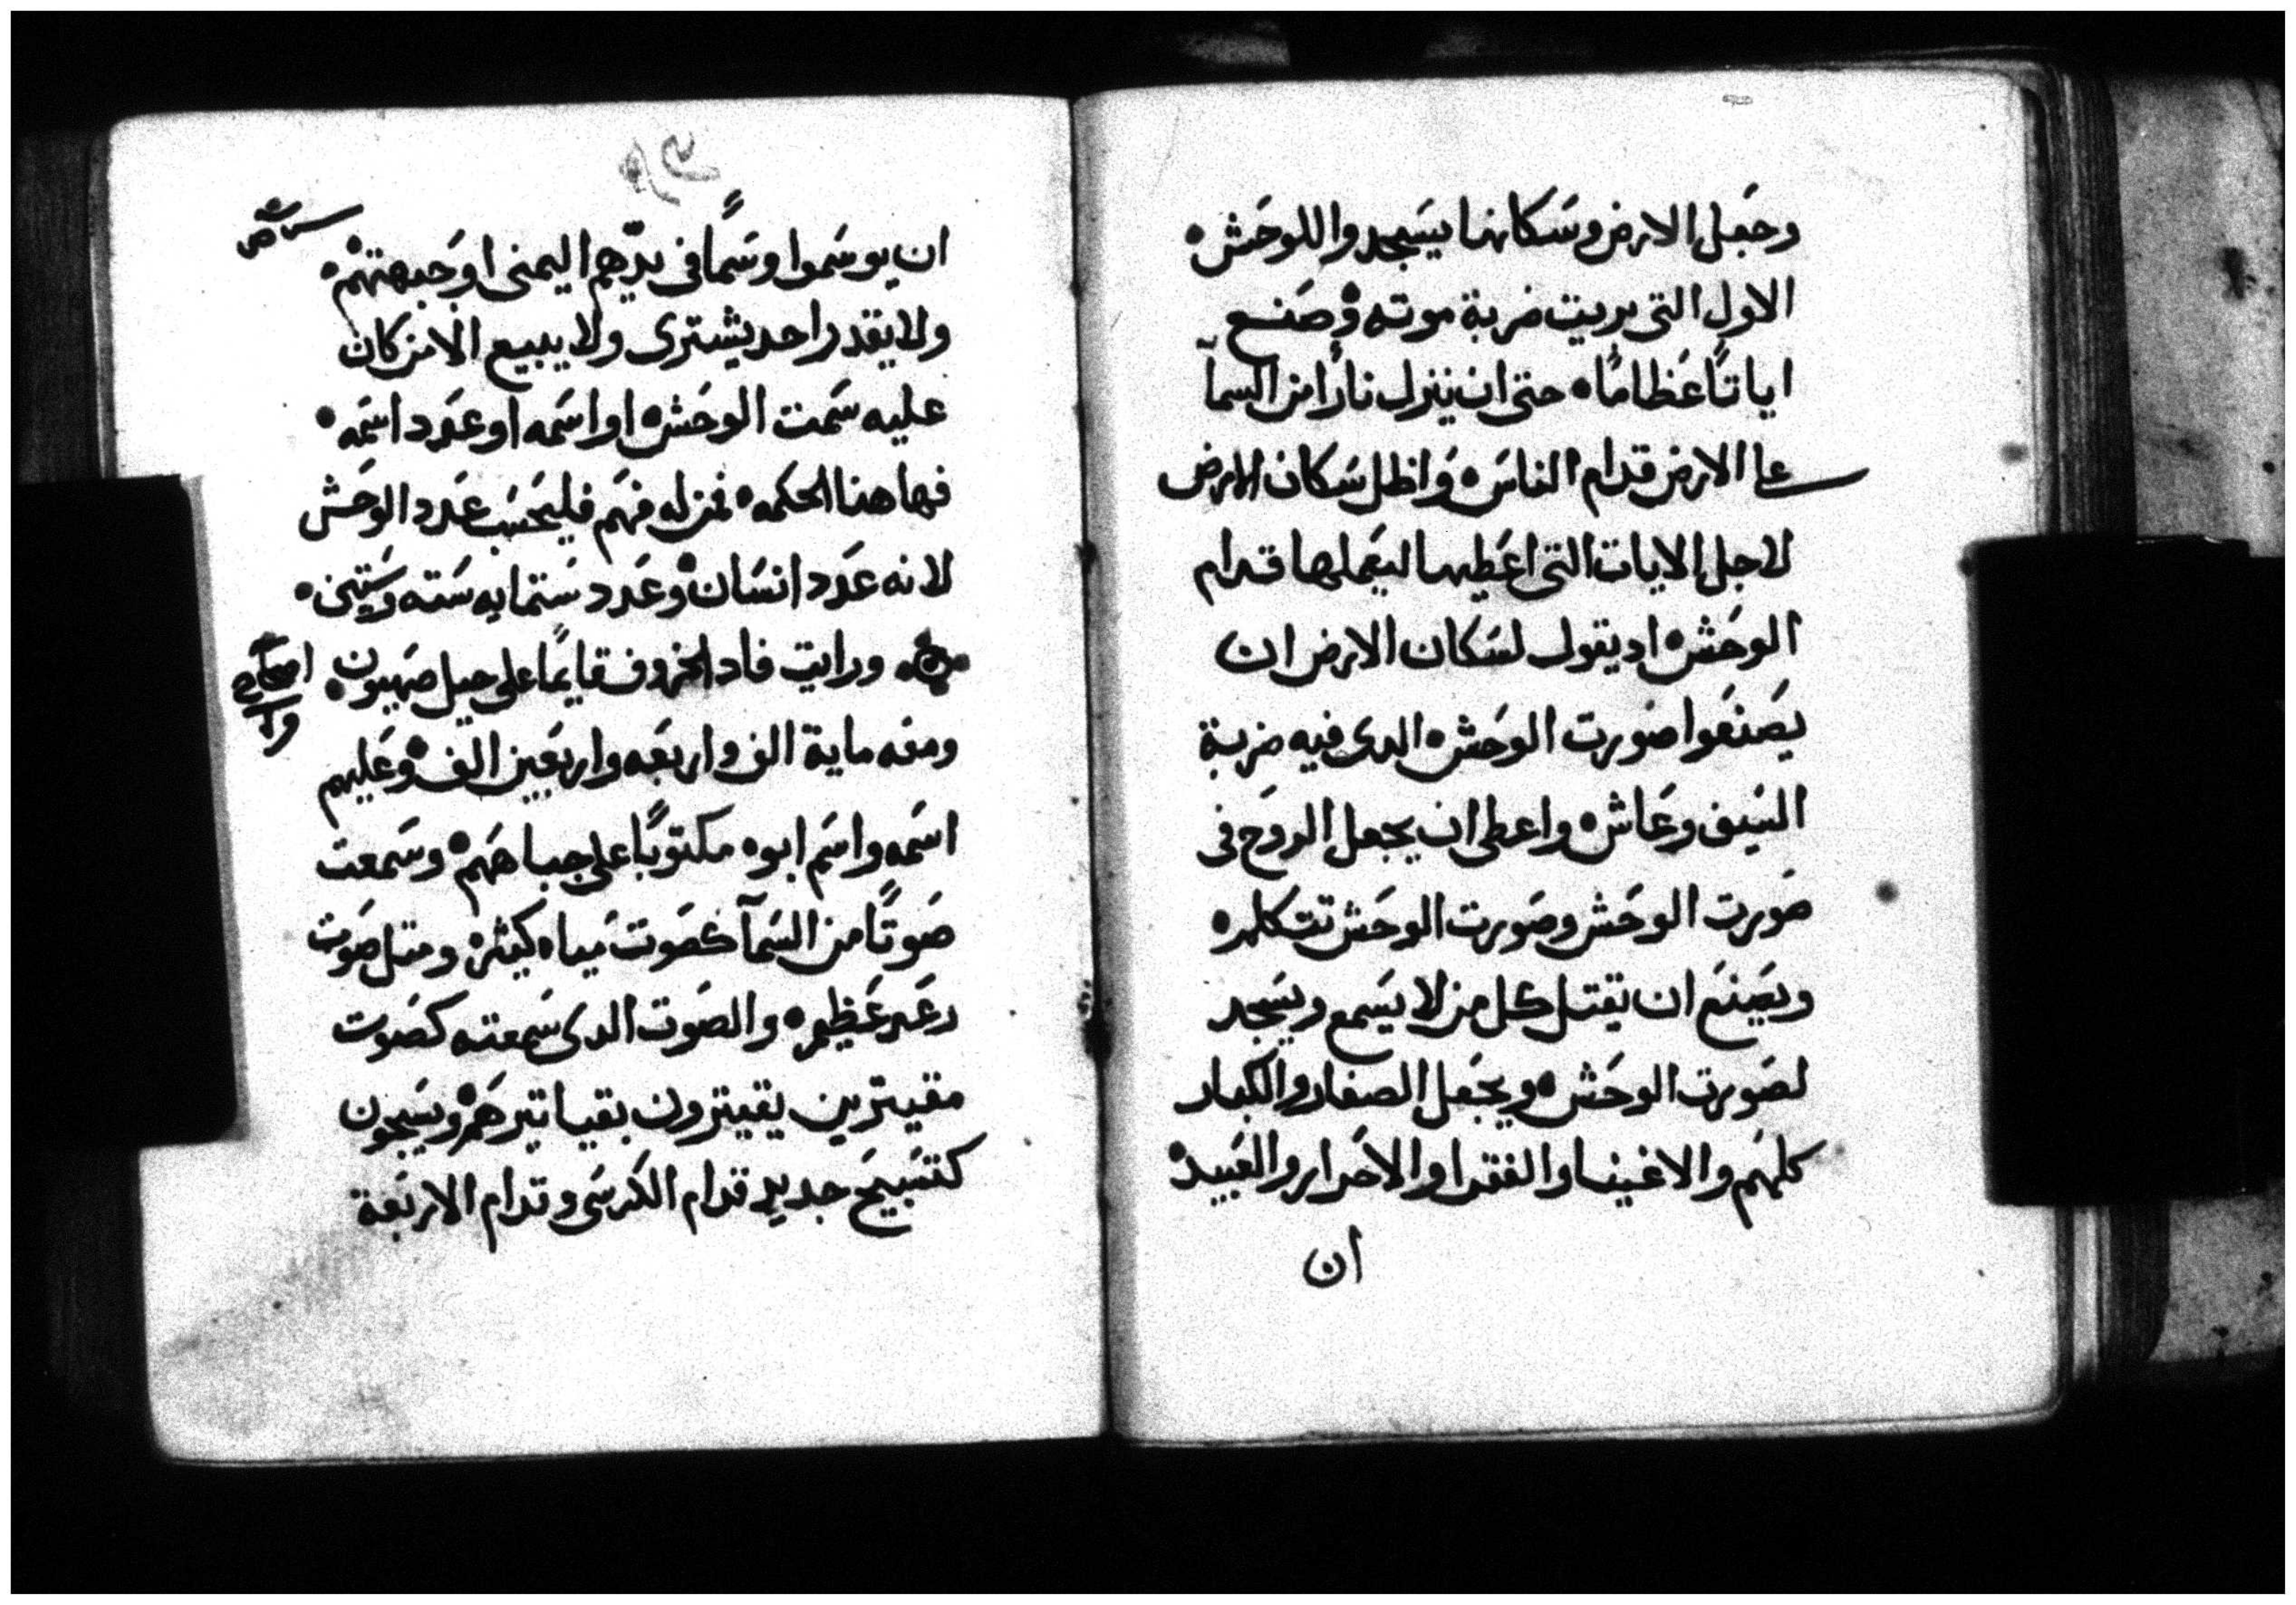 وجعل الارض وسكانها يسجدوا للوحش
الاول التى بريت ضربة موته وصنع
اياتاً عظاماً حتى ان ينزل ناراً من السمآ
على الارض قدام الناس واظل سكان الارض
لاجل الايات التى اعطيها ليعملها قدام
الوحش اد يقول لسكان الارض ان
يصنعوا صورت الوحش الدى فيه ضربة
السيف وعاش واعطى ان يجعل الروح فى
صورت الوحش وصورت الوحش تتكلم
ويصنع ان يقتل كل من لا يسمع ويسجد
لصورت الوحش ويجعل الصغار والكبار
كلهم والاغنيا والفقرا والاحرار والعبيد
ان
ان يوسموا وسماً فى يدّهم اليمنى او جبهتهم
ولا يقدر احد يشترى ولا يبيع الا من كان
عليه سمت الوحش او اسمه او عدد اسمه
فهاهنا الحكمه فمن له فهم فليحسب عدد الوحش
لانه عدد انسان وعدد ستمايه سته وستين
ورايت فاد الخروف قايماً على جبل صهيون
ومعه ماية الف واربعه واربعين الف وعليهم
اسمه واسم ابوه مكتوباً على جباههم وسمعت
صوتاً من السمآ كصوت مياه كيثره ومتل صوت
رعد عظيم والصوت الدى سمعته كصوت
مقيترين يقيترون بقياتيرهم ويسبحون
كتسبيح جديد قدام الكرسى وقدام الاربعة